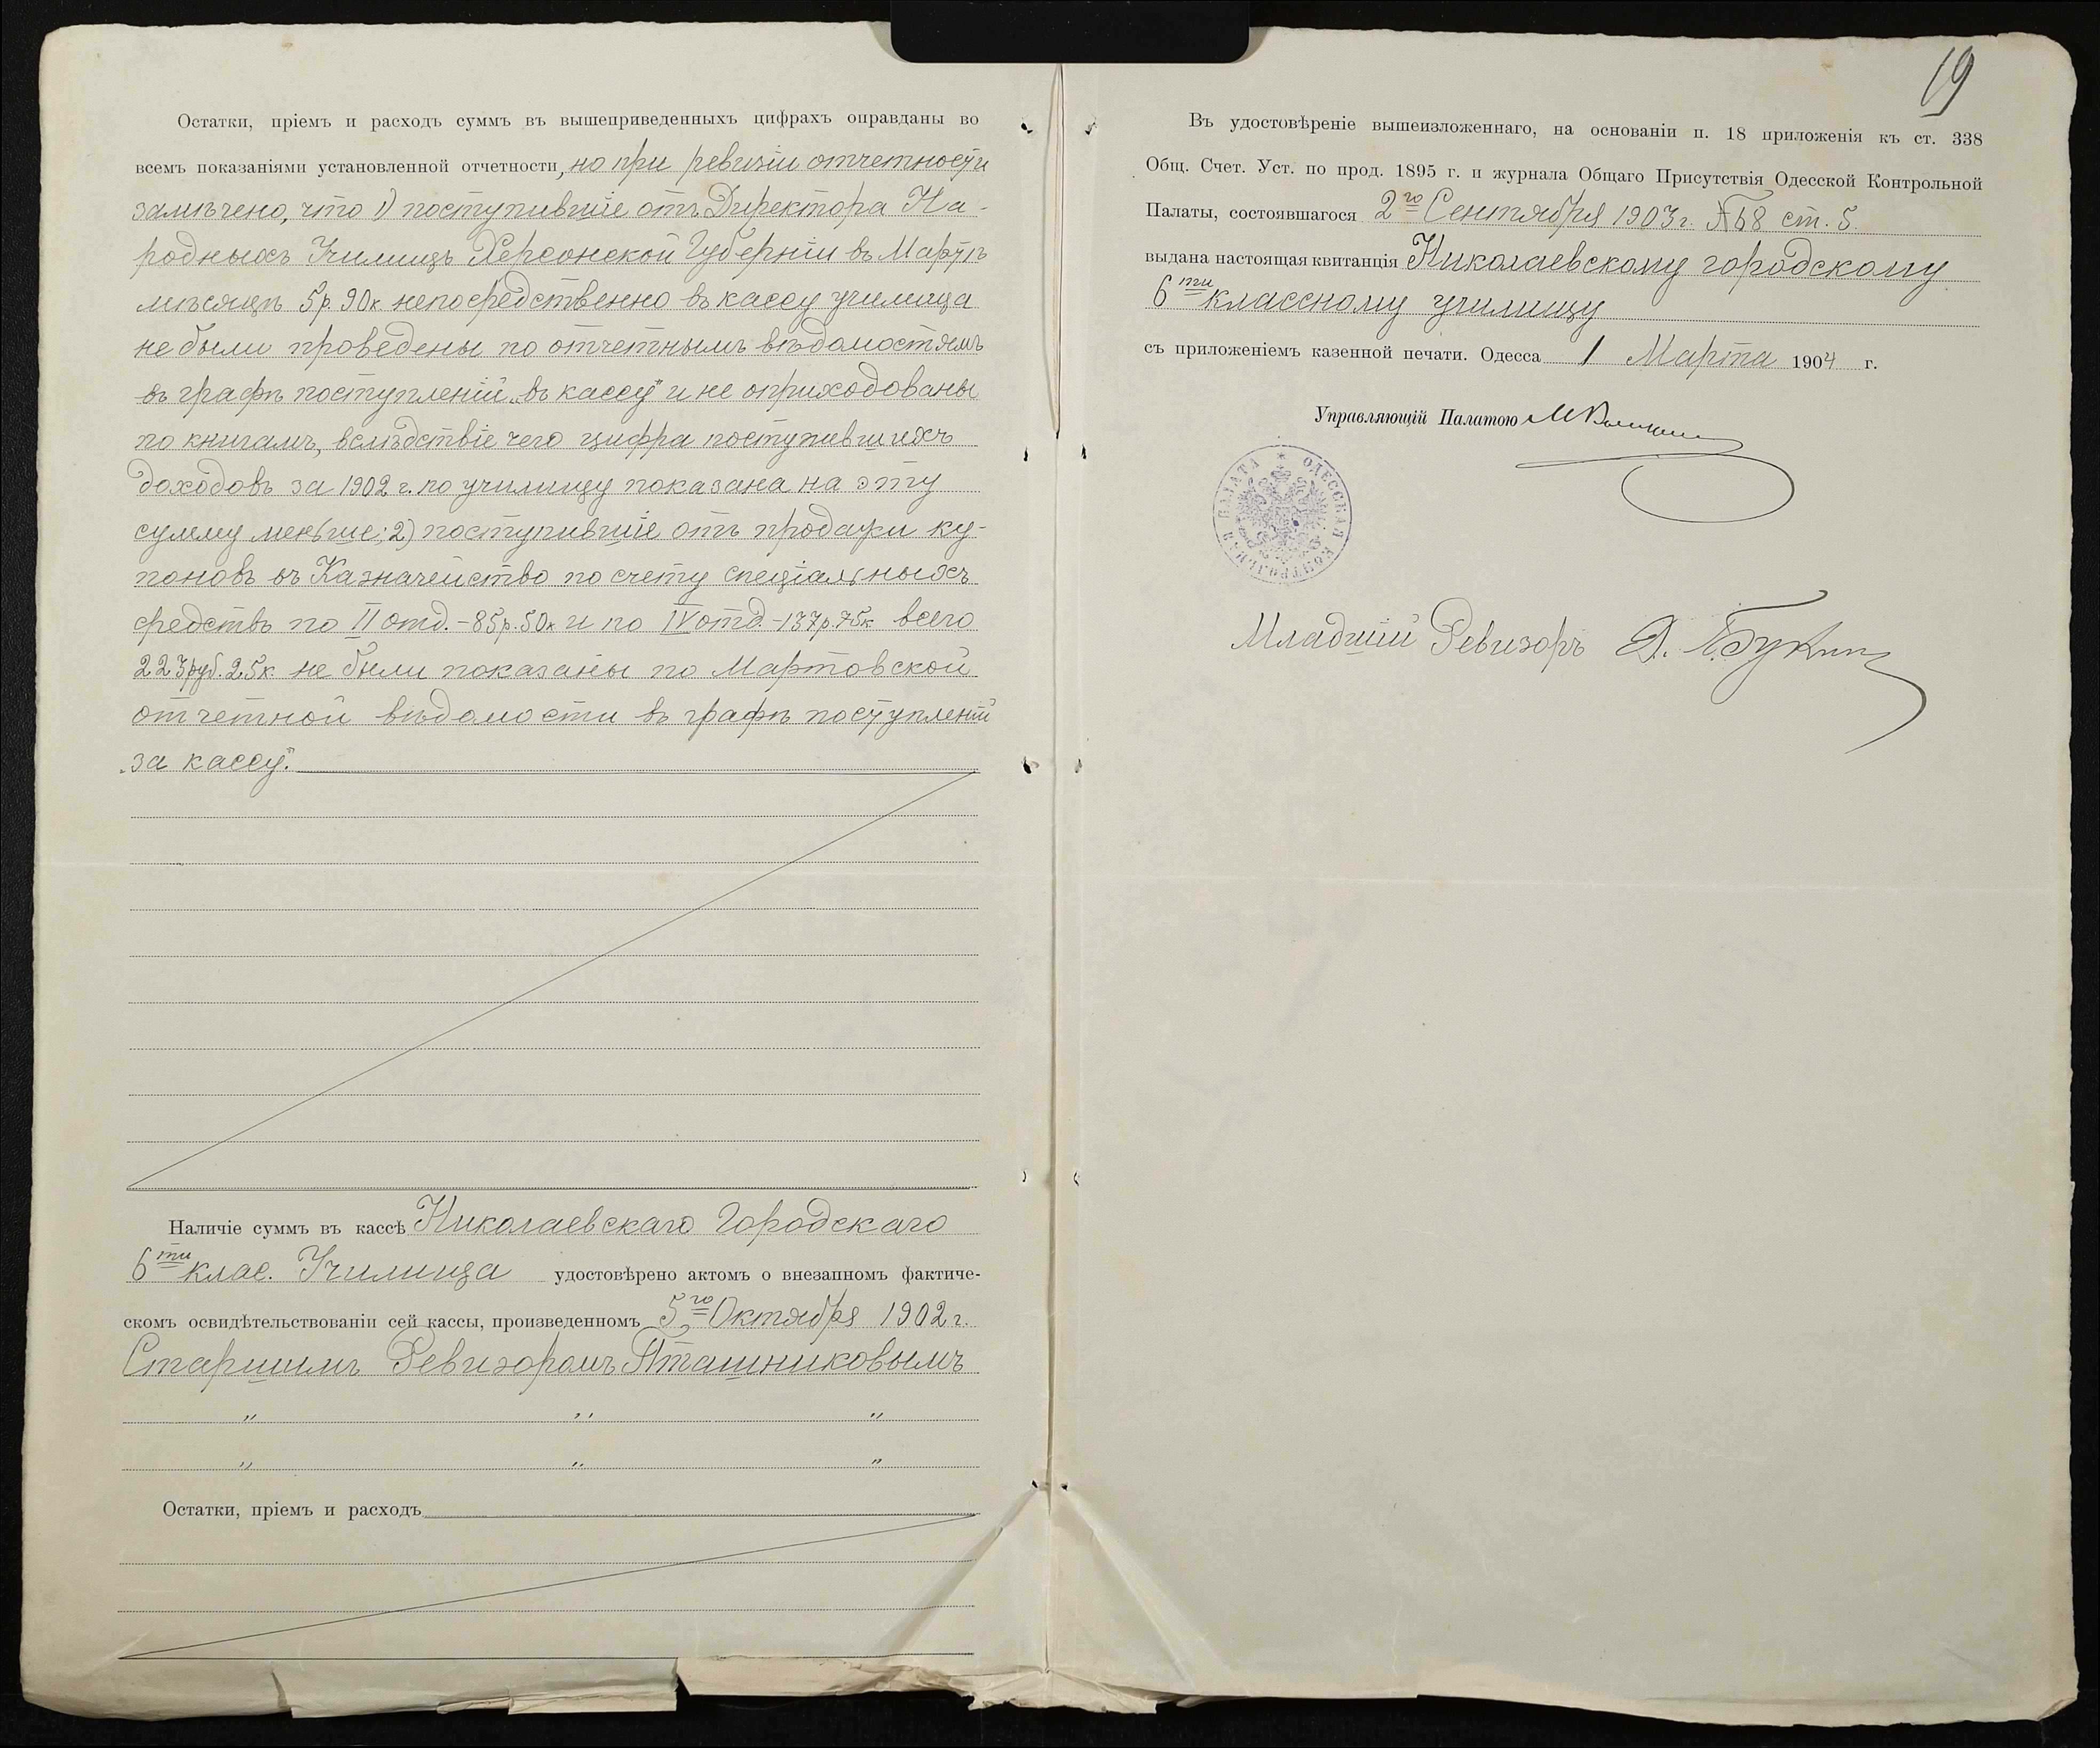 Остатки, пріемъ и расходъ суммъ въ вышеприведенныхъ цифрахъ оправданы во
всемъ показаніями установленной отчетности, но при ревизіи отчетности
замѣчено, что 1) поступившіе отъ Директора На-
родныхъ Училищъ Херсонской Губерніи въ Мартѣ
мѣсяцѣ 5р. 90к. непосредственно въ кассу училища
не были проведены по отчетнымъ вѣдомостямъ
въ графѣ поступленій „въ кассу" и не оприходованы
по книгамъ, вслѣдствіе чего цифра поступившихъ
доходовъ за 1902 г. по училищу показана на эту
сумму меньше; 2) поступившіе отъ продажи ку-
поновъ въ Казначейство по счету спеціальныхъ
средствъ по II отд. - 85р. 50к и по IV отд. - 137р. 75к всего
223руб. 25к. не были показаны по Мартовской
отчетной вѣдомости въ графѣ поступленій
„за кассу".
Наличіе суммъ въ кассѣ Николаевскаго Городскаго
6ти клас. Училища удостовѣрено актомъ о внезапномъ фактиче-
скомъ освидѣтельствованіи сей кассы, произведенномъ 5го Октября 1902 г.
Старшимъ Ревизоромъ Пташниковымъ
„ „ „
„ „ „
Остатки, пріемъ и расходъ
19
Въ удостовѣреніе вышеизложеннаго, на основаніи п. 18 приложенія къ ст. 338
Общ. Счет. Уст. по прод. 1895 г. и журнала Общаго Присутствія Одесской Контрольной
Палаты, состоявшагося 2го Сентября 1903 г. № 68 ст. 5.
выдана настоящая квитанція Николаевскому городскому
6ти классному училищу
съ приложеніемъ казенной печати. Одесса 1 Марта 1904 г.
Управляющій Палатою
ОДЕССКАЯ КОНТРОЛЬНАЯ ПАЛАТА *
Младшій Ревизоръ